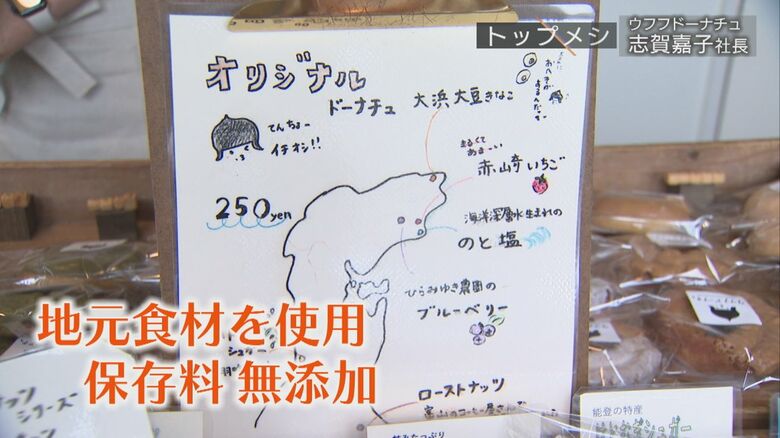 トップメシ
ウフフドーナチュ
志賀嘉子社長
オリジナル
ドーナチュ
大浜大豆きなこ
てんちょー
イチオシ!!
250yen
まるくて
あまーい
赤崎いちご
海洋深層水生まれの
のと塩
ひらみゆき農園の
ブルーベリー
ローストナッツ
地元食材を使用
保存料 無添加
能登の特産